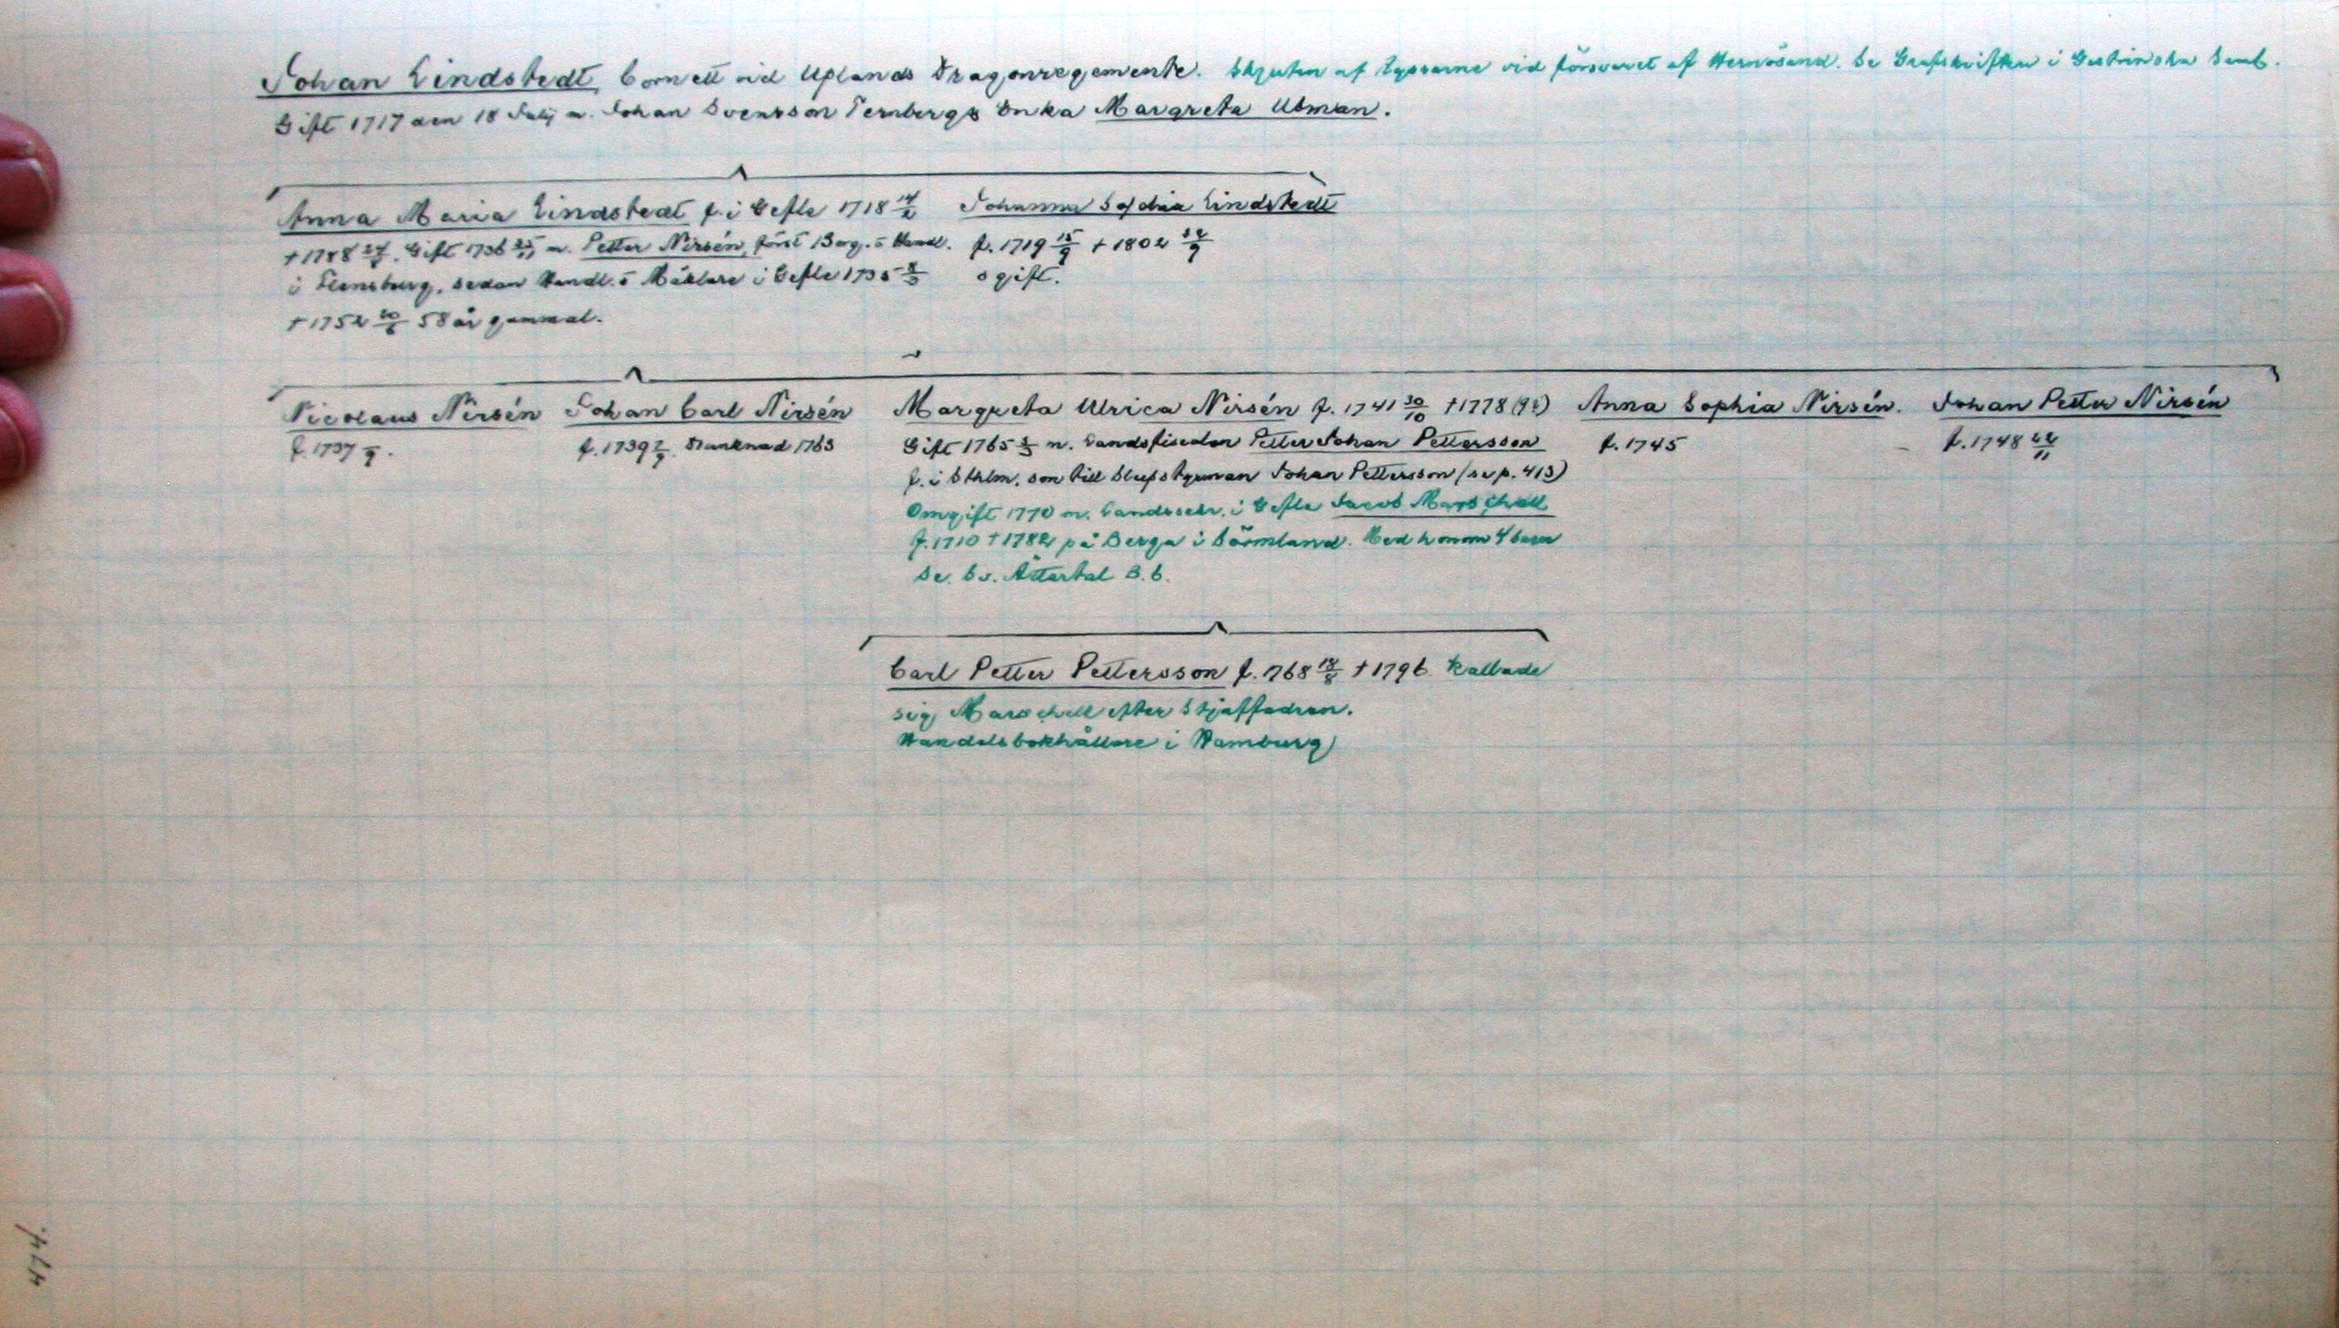 Johan Lindstedt, Cornett vid Uplands Dragonregemente. Skjuten af Ryssarne vid försvaret af Hernösand. Se Grafskriften i Gestrinska Saml.
Gift 1717 den 18 Julij m. Johan Svensson Ternbergs Enka Margreta Ubman.
Anna Maria Lindstedt f. i Gefle 1718 14/2
+1788. Gift 1736 25/11 m. Petter Nirsén, först Borg. o Handl.
i Flensburg, sedan Handl. o Mäklare i Gefle 1735 8/3
+1752 20/6 58 år gammal.
Johanna Sophia Lindstedt
f. 1719 15/9 +1802
ogift.
Nicolaus Nirsén
f. 1737 /9.
Johan Carl Nirsén
f. 1739 2/9. Drunknad 1763
Margreta Ulrica Nirsén f. 1741 30/10 +1778
Gift 1765 m. Landsfiscalen Petter Johan Pettersson
f. i Sthlm. son till Skepstyrman Johan Pettersson (se p. 413)
Omgift 1770 m. Landssekr. i Gefle Jacob Marschell
f. 1710 +1782 på Berga i Sörmland. Med honom 4 barn
Se. Ättartal B.6.
Anna Sophia Nirsén.
f. 1745
Johan Petter Nirsén
f. 1748 22/11
Carl Petter Pettersson f. 1768 18/8 +1796 kallade
sig Marschell efter Stjuffadren.
Handelsbokhållare i Hamburg
474